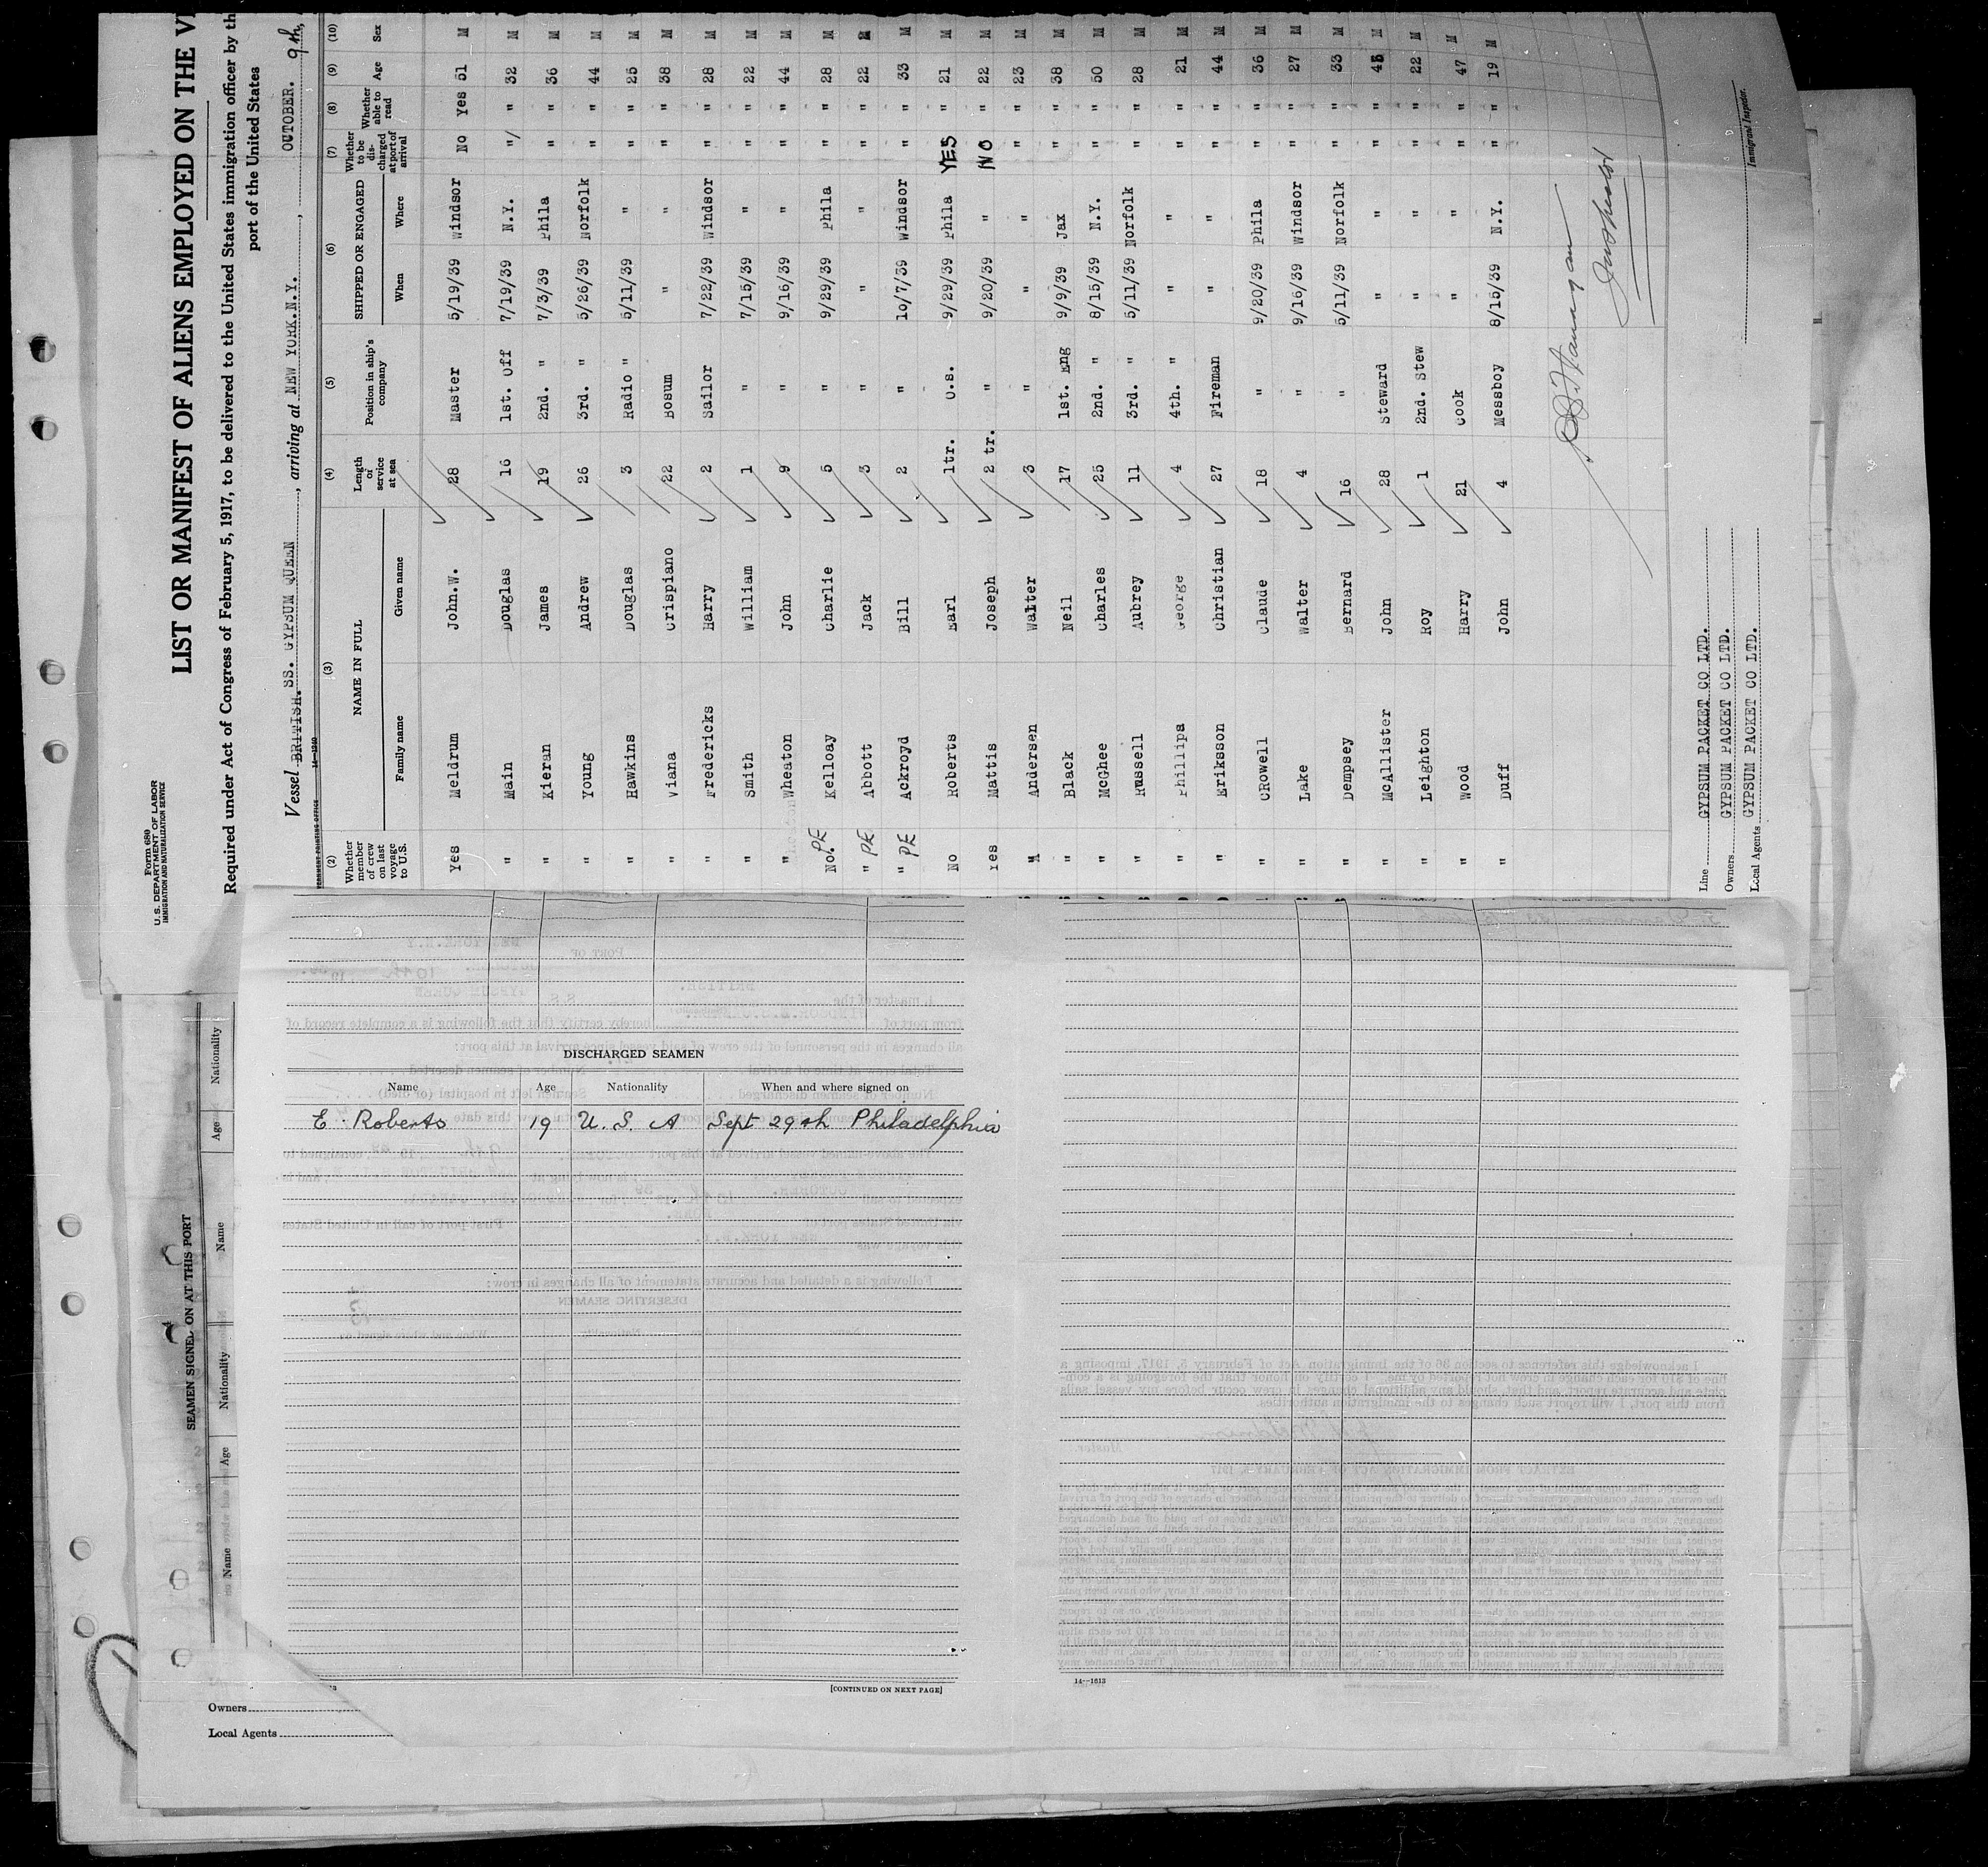 Form 680
U.S. DEPARTMENT OF LABOR
IMMIGRATION AND NATURALIZATION SERVICE
LIST OR MANIFEST OF ALIENS EMPLOYED ON THE
Required under Act of Congress of February 5, 1917, to be delivered to the United States immigration officer by th
port of the United States
Vessel BRITISH. SS. GYPSUM QUEEN, arriving at NEW YORK.N.Y., OCTOBER. 9th,
(2) (3) (4) (5) (6) (7) (8) (9) (10)
Whether member of crew on last voyage to U.S. NAME IN FULL Family name Given name Length of service at sea Position in ship's company SHIPPED OR ENGAGED When Where Whether to be discharged at port of arrival Whether able to read Age Sex
Yes Meldrum John.W. 28 Master 5/19/39 Windsor No Yes 51 M
" Main Douglas 16 1st. Off 7/19/39 N.Y. " " 32 M
" Kieran James 19 2nd. " 7/3/39 Phila " " 36 M
" Young Andrew 26 3rd. " 5/26/39 Norfolk " " 44 M
" Hawkins Douglas 3 Radio " 5/11/39 " " " 25 M
" Viana Crispiano 22 Bosum " " " " 38 M
" Fredericks Harry 2 Sailor 7/22/39 Windsor " " 28 M
" Smith William 1 " 7/15/39 " " " 22 M
" Wheaton John 9 " 9/16/39 " " " 44 M
No. PE Kelloay Charlie 5 " 9/29/39 Phila " " 28 M
" PE Abbott Jack 3 " " " " " 22 M
" PE Ackroyd Bill 2 " 10/7/39 Windsor " " 33 M
No Roberts Earl 1tr. O.S. 9/29/39 Phila YES " 21 M
Yes Mattis Joseph 2 tr. " 9/20/39 " NO " 22 M
" Andersen Walter 3 " " " " " 23 M
" Black Neil 17 1st. Eng 9/9/39 Jax " " 38 M
" McGhee Charles 25 2nd. " 8/15/39 N.Y. " " 50 M
" Russell Aubrey 11 3rd. " 5/11/39 Norfolk " " 28 M
" Phillips George 4 4th. " " " " " 21 M
" Eriksson Christian 27 Fireman " " " " 44 M
" CRowell Claude 18 " 9/20/39 Phila " " 36 M
" Lake Walter 4 " 9/16/39 Windsor " " 27 M
" Dempsey Bernard 16 " 5/11/39 Norfolk " " 33 M
" McAllister John 28 Steward " " " " M
" Leighton Roy 1 2nd. Stew " " " " 22 M
" Wood Harry 21 Cook " " " " 47 M
" Duff John 4 Messboy 8/15/39 N.Y. " " 19 M
Line GYPSUM PACKET CO LTD.
Owners GYPSUM PACKET CO LTD.
Local Agents GYPSUM PACKET CO LTD.
Immigrant Inspector.
DISCHARGED SEAMEN
Name Age Nationality When and where signed on
E. Roberts 19 U.S.A Sept 29th Philadelphia
[CONTINUED ON NEXT PAGE]
14-1613
SEAMEN SIGNED ON AT THIS PORT
Name Age Nationality
Name Age Nationality
Owners
Local Agents